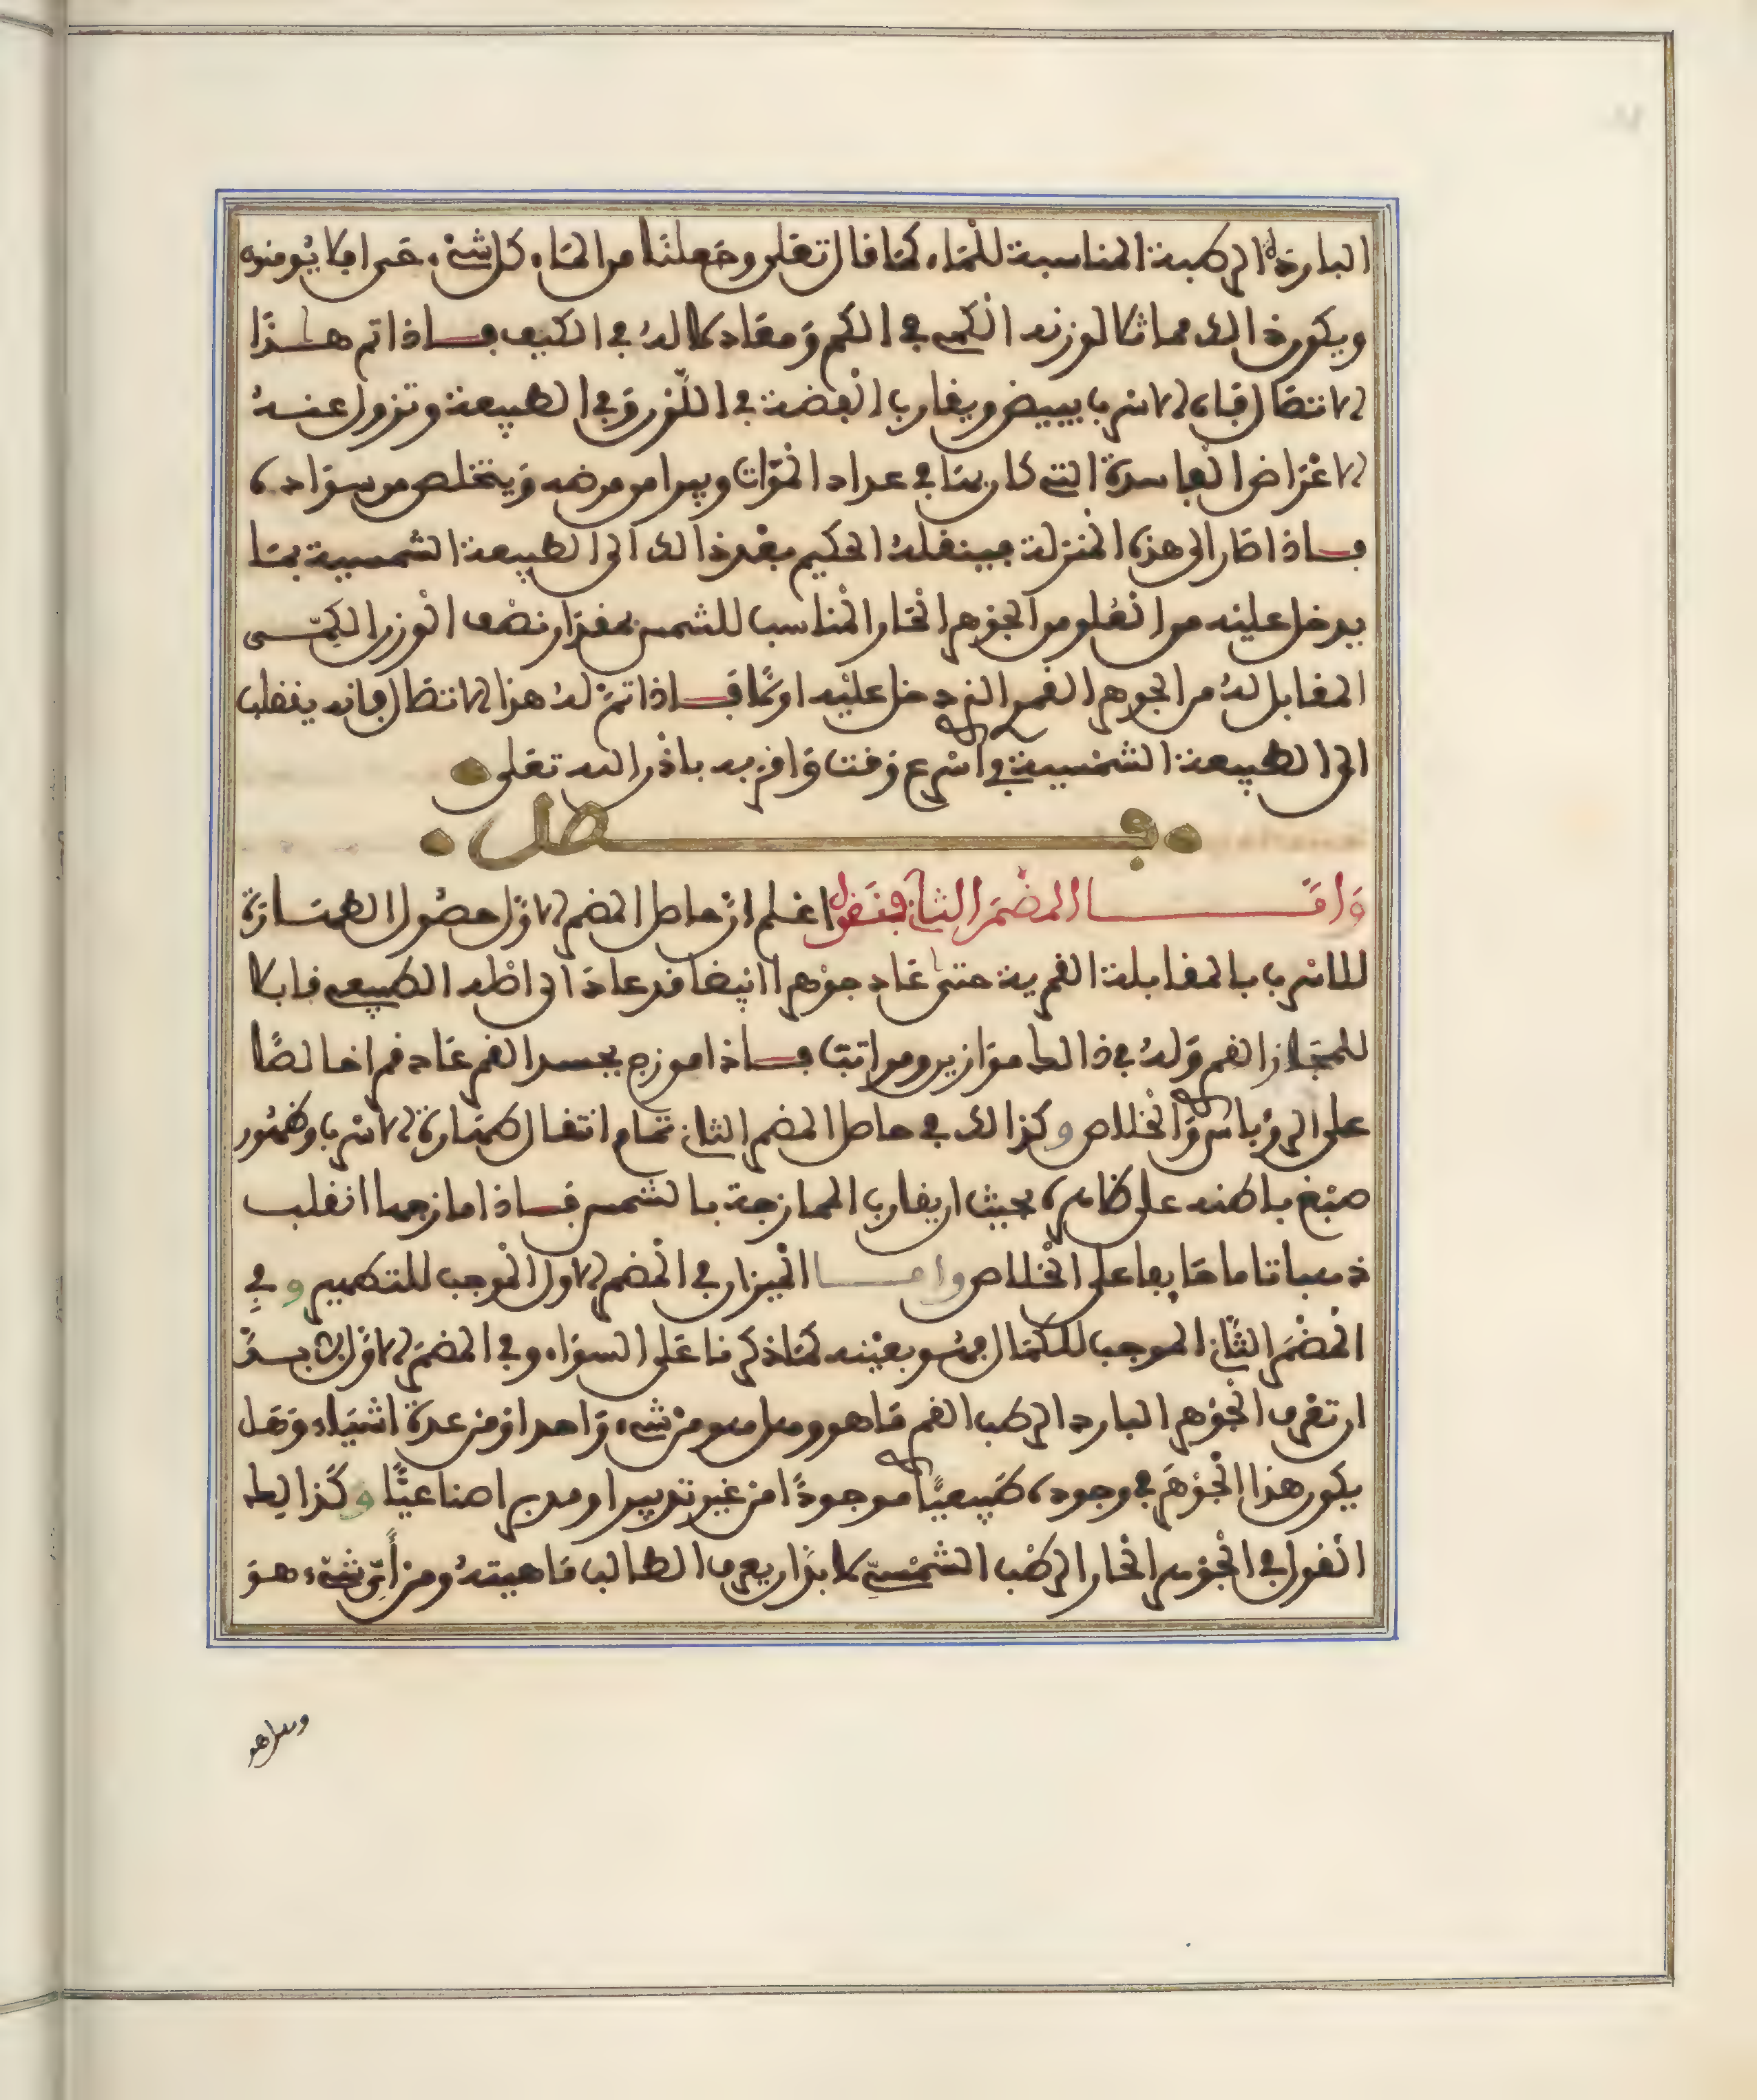 الباردة الرطبة المناسبة للماء كما قال تعلى وجعلنا من الماء كل شيء حي افلا يومنون
ويكون ذالك مماثلا لوزنه الكمي في الكم ومعادلا له في الكيف فاذا تم هذا
الاتصال فان الاسرب يبيض ويقارب الفضة في اللون وفي الطبيعة وتزول عنه
الاعراض الفاسدة التي كان بها في عداد الموات ويبرا من مرضه ويتخلص من سواده
فاذا صار الى هذه المنزلة فينقله الحكيم بعد ذالك الى الطبيعة الشمسية بما
يدخل عليه من العلو من الجوهر الحار المناسب للشمس بمقدار نصف الوزن الكمي
المقابل له من الجوهر القمر الذي دخل عليه اولا فاذا تم له هذا الاتصال فانه ينقلب
الى الطبيعة الشمسية في اسرع وقت واقربه باذن الله تعلى
فصل
واما المضمر الثاني فنقول اعلم ان حاصل المضمر الاول حصول الطهارة
للاسرب بالمقابلة القمرية حتى عاد جوهرا ابيضا قد عاد الى اصله الطبيعي قابلا
للمجاز القمر وله في ذالك موازين ومراتب فاذا موزج بجسد القمر عاد قمرا خالصا
على الروباس والخلاص وكذالك في حاصل المضمر الثاني تمام انتقال طهارة الاسرب وظهور
صبغ باطنه على ظاهره بحيث ان يقارب الممازجة بالشمس فاذا مازجها انقلب
ذهبا تاما صابرا على الخلاص واما الميزان في المضمر الاول الموجب للتطهير وفي
المضمر الثاني الموجب للكمال فهو بعينه كما ذكرنا على السواء وفي المضمر الاول لا بد
ان تعرف الجوهر البارد الرطب القمر ما هو وهل هو من شيء واحد او من عدة اشياء وهل
يكون هذا الجوهر في وجوده طبيعيا موجودا من غير تدبير او مدبرا صناعيا وكذالك
القول في الجوهر الحار الرطب الشمسي لا بد ان يعرف الطالب ماهيته ومن أي شيء هو
وهل هو